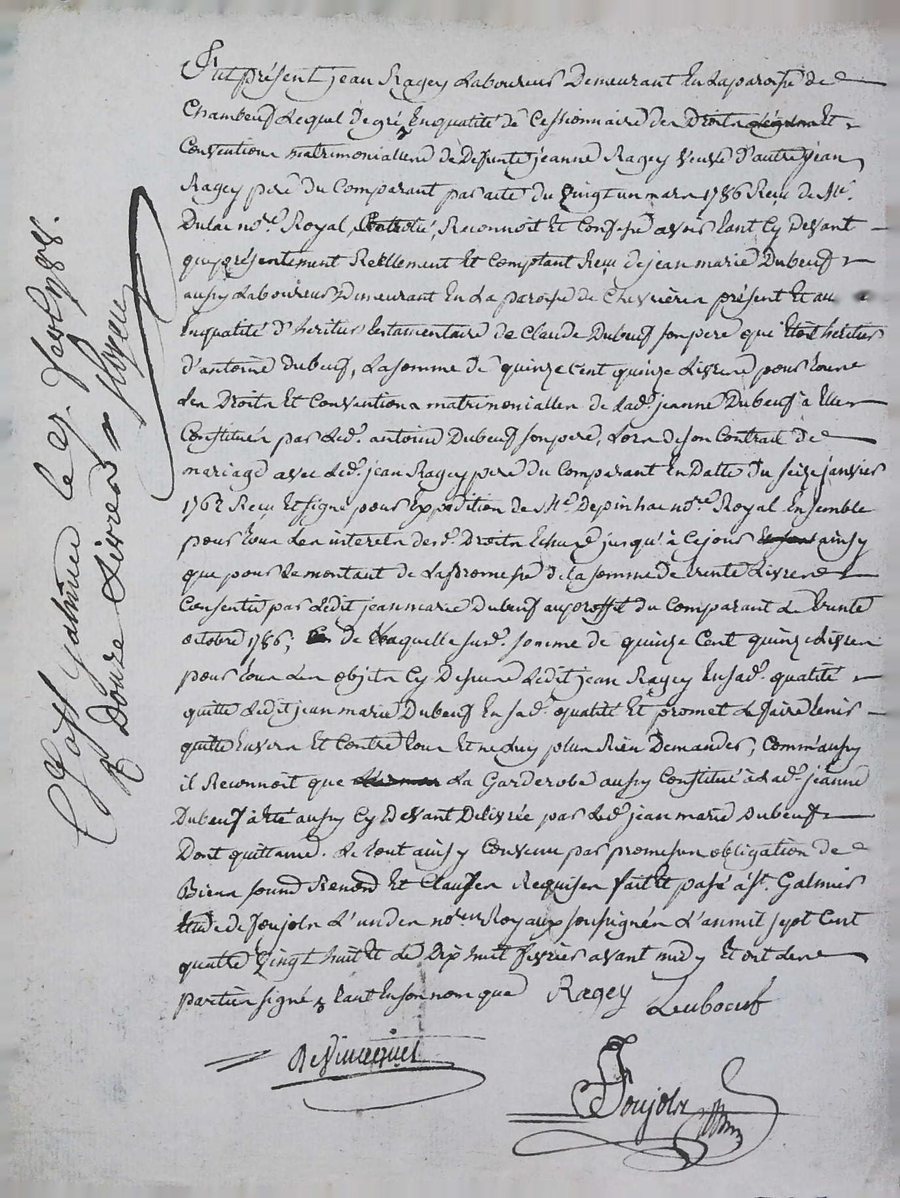 Fut présent jean Ragey Laboureur Demeurant En Laparoisse de
Chambeuf Lequel de gré, Enqualité de Cessionnaire des Droits Et
Convention matrimonialles de Defunte jeanne Ragey veuve d'autre jean
Ragey pere du Comparant par acte du Vingt un mars 1786 Reçu de Me.
Dulac nore. Royal, Controlé, Reconnoit Et Confesse avoir tant Cy devant
que présentement Réellement Et Comptant Reçu de jean marie Dubeuf
aussy Laboureur Demeurant En La paroisse de Chevrières présent Et au
Enqualité d'heritier testamentaire de Claude Dubeuf son pere qui étoit heritier
d'antoine Dubeuf, La somme de quinze Cent quinze Livres pour tous
Les Droits Et Conventions matrimonialles de Lad. jeanne Dubeuf à Elle
Constitués par Led. antoine Dubeuf son pere, Lors de son Contrait de
mariage avec Led. jean Ragey pere du Comparant En Datte du seize janvier
1762 Reçu Et signé pour Expedition de Me. Depinhac nore. Royal Ensemble
pour tous Les interets desd. Droits Echus jusqu'à Ce jour ainsy
que pour Le montant de La promesse de la somme de trente Livres
Consentie par Ledit jean marie Dubeuf au proffit du Comparant Le trente
octobre 1786, de Laquelle susd. somme de quinze Cent quinze Livres
pour tous Les objets Cy Dessus Ledit jean Ragey En sad. qualité
quitte Ledit jean marie Dubeuf En sad. qualité Et promet Le faire tenir
quitte Envers Et Contre tous Et ne luy plus Rien Demander, Comm'aussy
il Reconnoit que La Garderobe aussy Constitué à Lad. jeanne
Dubeuf à été aussy Cy Devant Delivrée par Led. jean marie Dubeuf
Dont quittance. Le tout ainsy Convenu par promesses obligation de
Biens soumd Renond Et Clauses Requises fait Et passé à St. Galmier
Etude de Poujols L'un des nores Royaux soussignés L'an mil sept Cent
quatre Vingt huit Et Le Dix huit fevrier avant midy Et ont Les
parties signé
Ragey
Duboeuf
Poujols
Cte. à St. Galmier le 27 fevr. 1788.
R. Douze Livres